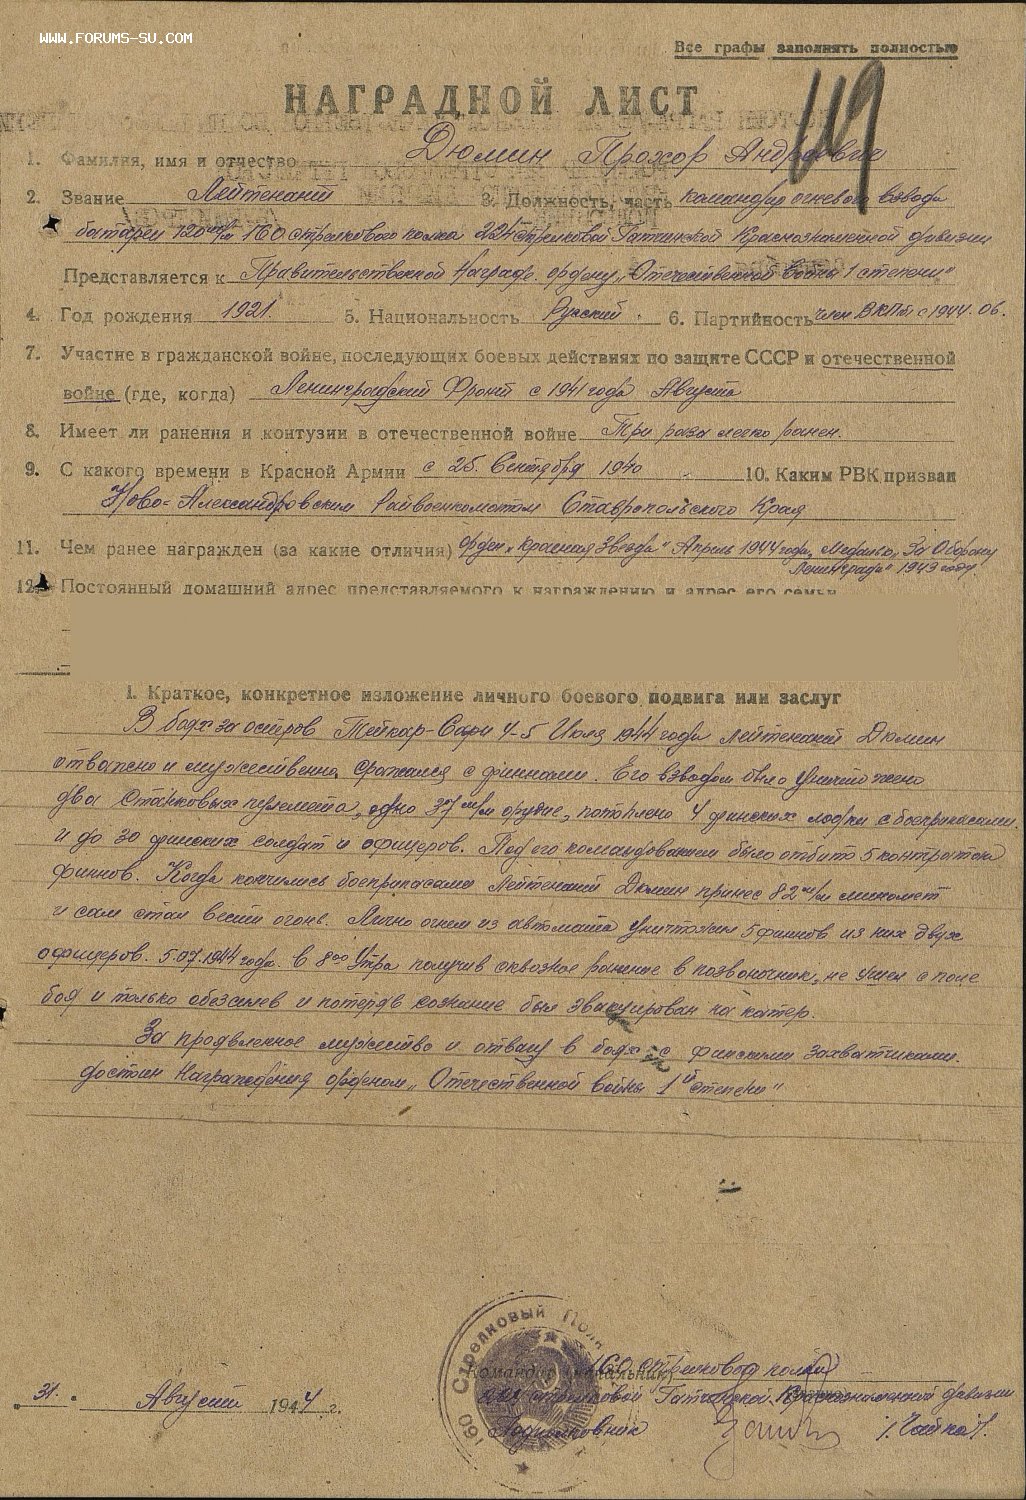 WWW.FORUMS-SU.COM
Все графы заполнять полностью
119
НАГРАДНОЙ ЛИСТ
1. Фамилия, имя и отчество Дюмин Прохор Андреевич
2. Звание Лейтенант 3. Должность, часть командир огневого взвода
батареи 120 м/м 160 стрелкового полка 224 стрелковой Гатчинской Краснознаменной дивизии
Представляется к Правительственной награде ордену „Отечественной войны 1 степени"
4. Год рождения 1921. 5. Национальность Русский. 6. Партийность член ВКПб с 1944. 06.
7. Участие в гражданской войне, последующих боевых действиях по защите СССР и отечественной
войне (где, когда) Ленинградский Фронт с 1941 года Августа
8. Имеет ли ранения и контузии в отечественной войне Три раза легко ранен.
9. С какого времени в Красной Армии с 25. Сентября 1940 10. Каким РВК призван
Ново=Александровским Райвоенкоматом Ставропольского Края
11. Чем ранее награжден (за какие отличия) орден „Красная Звезда" Апрель 1944 года, Медалью „За Оборону
Ленинграда" 1943 году.
12. Постоянный домашний адрес представляемого к награждению и адрес его семьи
I. Краткое, конкретное изложение личного боевого подвига или заслуг
В боях за остров Тейкар-Сари 4-5 Июля 1944 года Лейтенант Дюмин
отважно и мужественно сражался с финнами. Его взводом было уничтожено
два станковых пулемета, одно 37 м/м орудие, потоплено 4 финских лодки с боеприпасами
и до 30 финских солдат и офицеров. Под его командованием было отбито 5 контратак
финнов. Когда кончились боеприпасами Лейтенант Дюмин принес 82 м/м миномет
и сам стал вести огонь. Лично огнем из автомата уничтожил 5 финнов из них двух
офицеров. 5.07.1944 года. в 8 00 Утра получив сквозное ранение в позвоночник, не ушел с поле
боя и только обезсилев и потеряв сознание был эвакуирован на катер.
За проявленное мужество и отвагу в боях с финскими захватчиками.
достоин награждения орденом „Отечественной войны 1й степени"
160 Стрелковый Полк
Командир (начальник) 160 стрелкового полка
224 стрелковой Гатчинской Краснознаменной дивизии
„31." Августа 1944 г.
Подполковник /Чайка/.